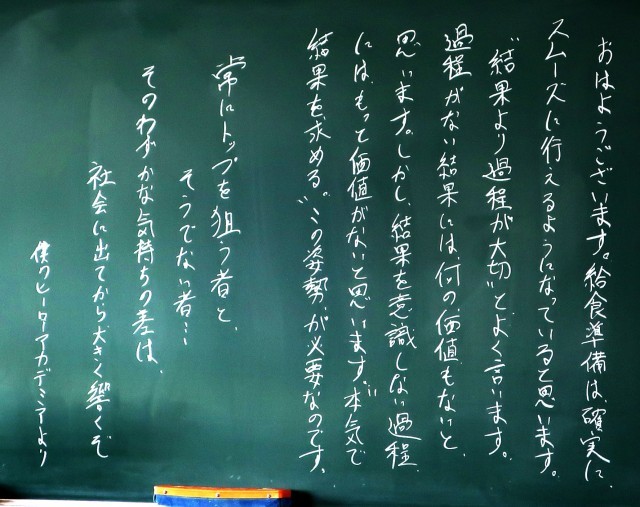 おはようございます。給食準備は、確実に、
スムーズに行えるようになっていると思います。
“結果より過程が大切”とよく言います。
過程がない結果には、何の価値もないと、
思います。しかし、結果を意識しない過程
には、もって価値がないと思います。“本気で
結果を求める。”この姿勢が必要なのです。
常にトップを狙う者と、
そうでない者…
そのわずかな気持ちの差は、
社会に出てから大きく響くぞ
僕のヒーローアカデミアより